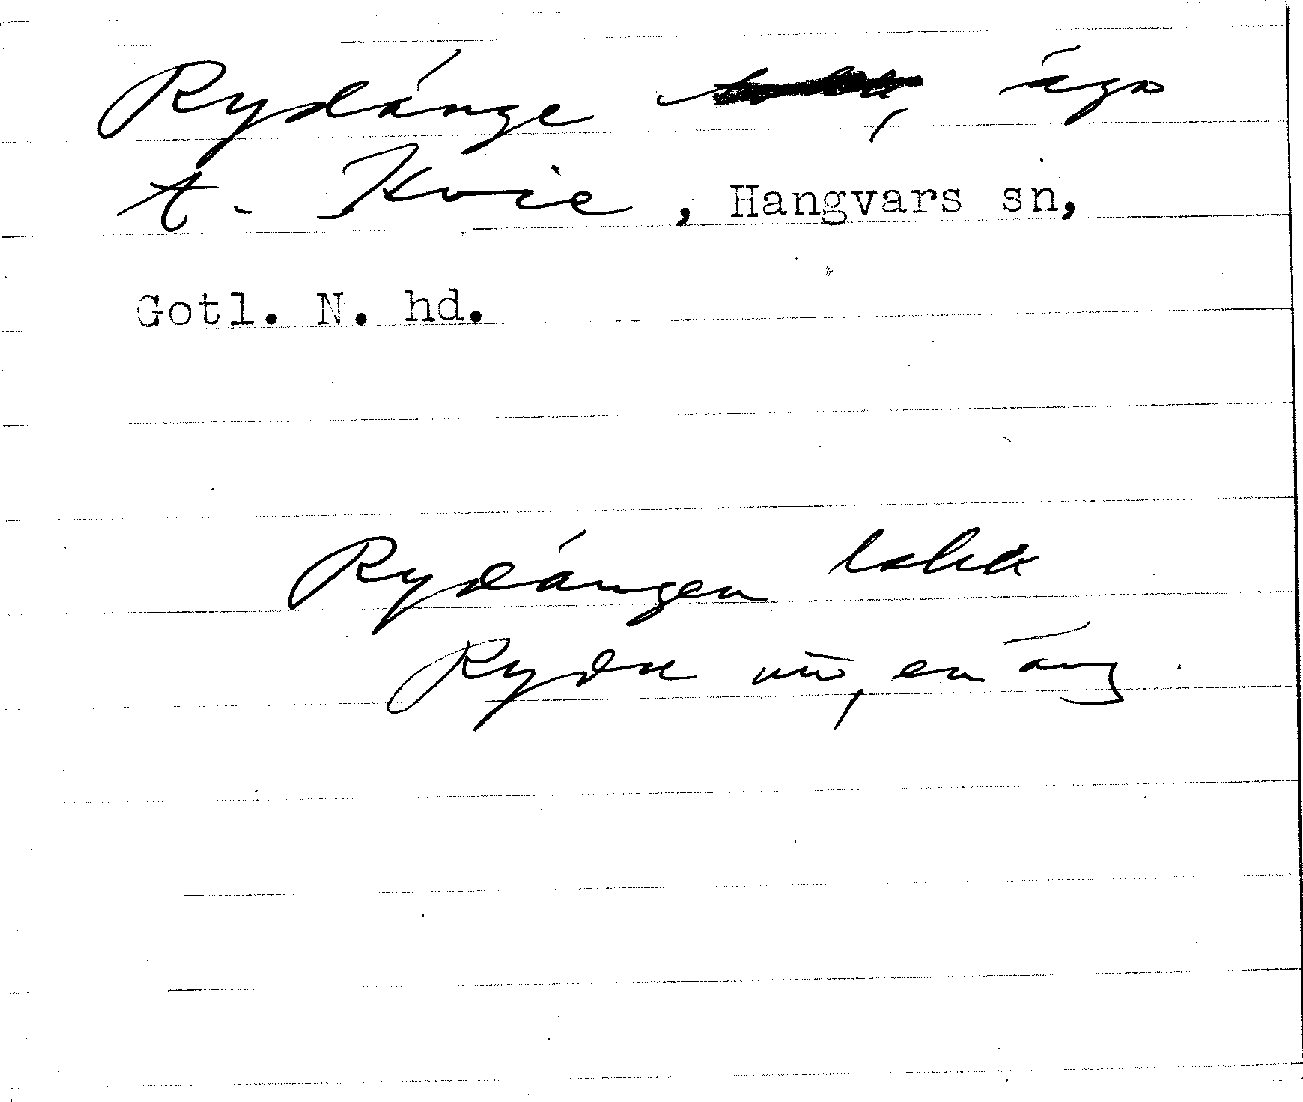 Rydänge , ägo
t. Kvie, Hangvars sn,
Gotl. N. hd.
Rydängen
Rydu , en äng.